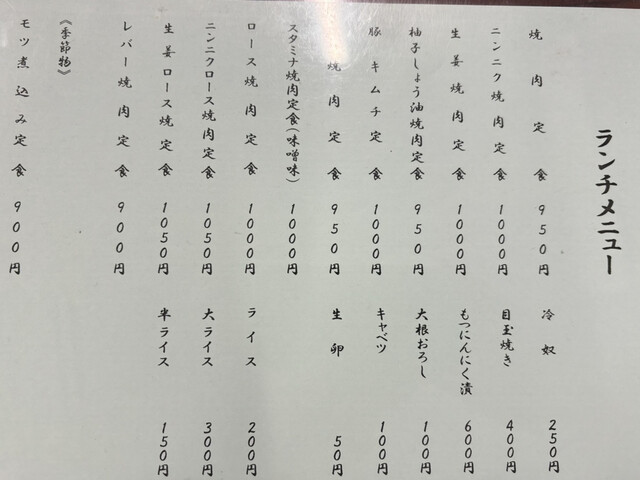 ランチメニュー
焼肉定食 950円
ニンニク焼肉定食 1000円
生姜焼肉定食 1000円
柚子しょう油焼肉定食 950円
豚キムチ定食 1000円
焼肉定食 950円
スタミナ焼肉定食(味噌味) 1000円
ロース焼肉定食 1000円
ニンニクロース焼肉定食 1050円
生姜ロース焼定食 1050円
レバー焼肉定食 900円
《季節物》
モツ煮込み定食 900円
冷奴 250円
目玉焼き 400円
もつにんにく漬 600円
大根おろし 100円
キャベツ 100円
生卵 50円
ライス 200円
大ライス 300円
半ライス 150円